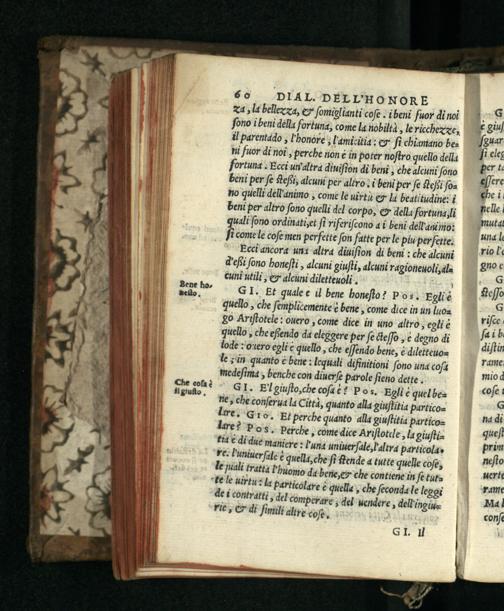 60 DIAL. DELL'HONORE
za, la bellezza, & somiglianti cose. i beni fuor di noi
sono i beni della fortuna, come la nobiltà, le ricchezze,
il parentado, l'honore, l'amicitia: & si chiamano be-
ni fuor di noi, perche non è in poter nostro quello della
fortuna. Ecci un'altra diuision di beni, che alcuni sono
beni per se stessi, alcuni per altro. i beni per se stessi so-
no quelli dell'animo, come le uirtù & la beatitudine: i
beni per altro sono quelli del corpo, & della fortuna, li
quali sono ordinati, et si riferiscono a i beni dell'animo:
si come le cose men perfette son fatte per le piu perfette.
Ecci ancora una altra diuision di beni: che alcuni
d'essi sono honesti, alcuni giusti, alcuni ragioneuoli, al-
cuni utili, & alcuni diletteuoli.
Bene ho-
nesto.
GI. Et quale è il bene honesto? Pos. Egli è
quello, che semplicemente è bene, come dice in un luo-
go Aristotele: ouero, come dice in uno altro, egli è
quello, che essendo da eleggere per se stesso, è degno di
lode: ouero egli è quello, che essendo bene, è diletteuo-
le, in quanto è bene: lequali difinitioni sono una cosa
medesima, benche con diuerse parole sieno dette.
Che cosa è
il giusto.
GI. E'l giusto, che cosa è? Pos. Egli è quel be-
ne, che conserua la Città, quanto alla giustitia partico-
lare. Gio. Et perche quanto alla giustitia partico-
lare? Pos. Perche, come dice Aristotele, la giusti-
tia è di due maniere: l'una uniuersale, l'altra particola-
re. l'uniuersale è quella, che si stende a tutte quelle cose,
le quali tratta l'huomo da bene, & che contiene in se tut-
te le uirtù: la particolare è quella, che seconda le leggi
de i contratti, del comperare, del uendere, dell'ingiu-
rie, & di simili altre cose.
GI. Il